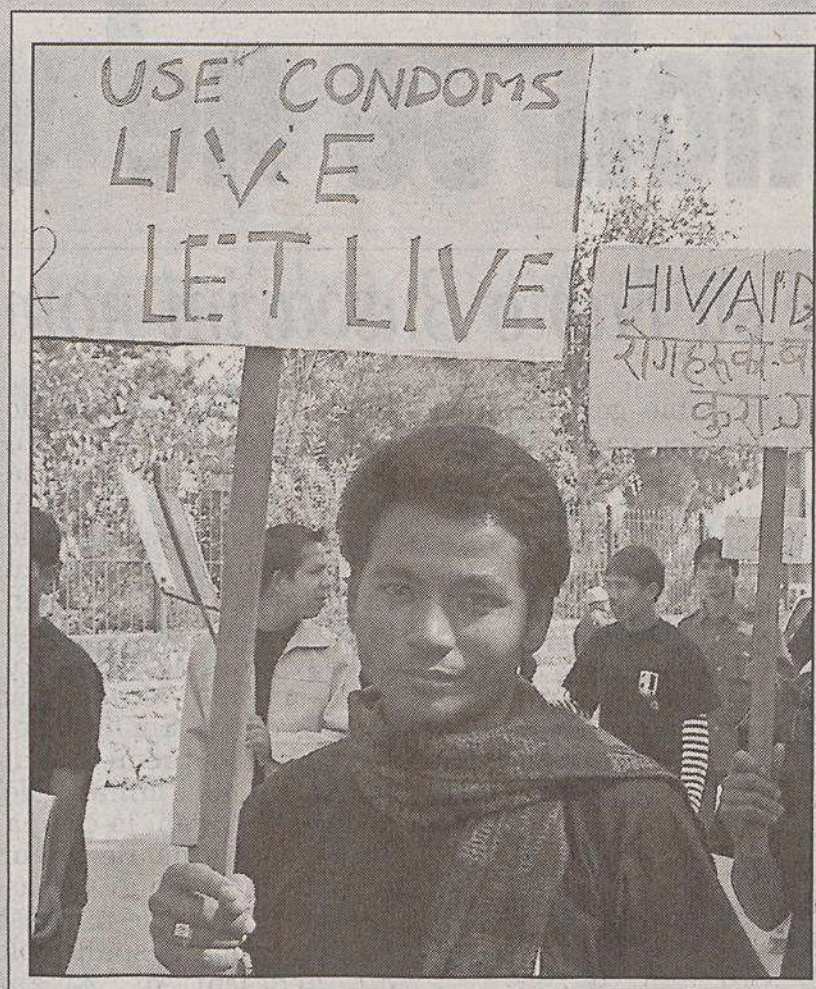 USE CONDOMS
LIVE
& LET LIVE
HIV/AID
रोगहरूको
कुरा